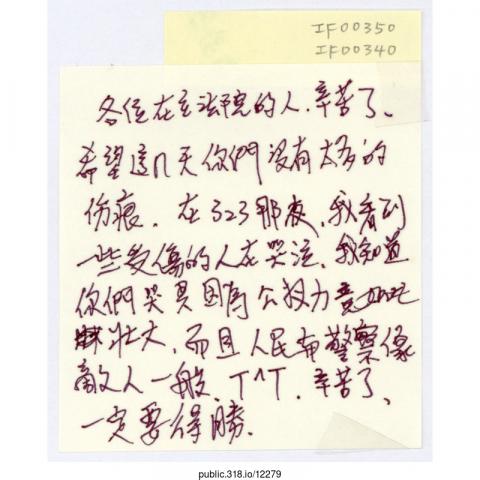 IF00350
IF00340
各位在立法院的人,辛苦了、
希望這几天你們沒有太多的
伤痕. 在323那夜,我看到
一些受傷的人在哭泣、我知道
你們哭是因為公权力竟如此
壯大,而且人民布警察像
敵人一般. T^T. 辛苦了、
一定要得勝.
public.318.io/12279